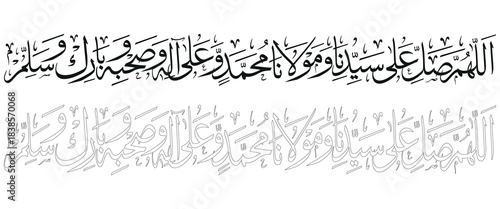 اللّٰهُمَّ صَلِّ عَلٰى سَيِّدِنَا وَمَوْلَانَا مُحَمَّدٍ وَّعَلٰى آلِهِ وَصَحْبِهِ وَبَارِكْ وَسَلِّمْ
اللّٰهُمَّ صَلِّ عَلٰى سَيِّدِنَا وَمَوْلَانَا مُحَمَّدٍ وَّعَلٰى آلِهِ وَصَحْبِهِ وَبَارِكْ وَسَلِّمْ
Adobe Stock | #1838570068